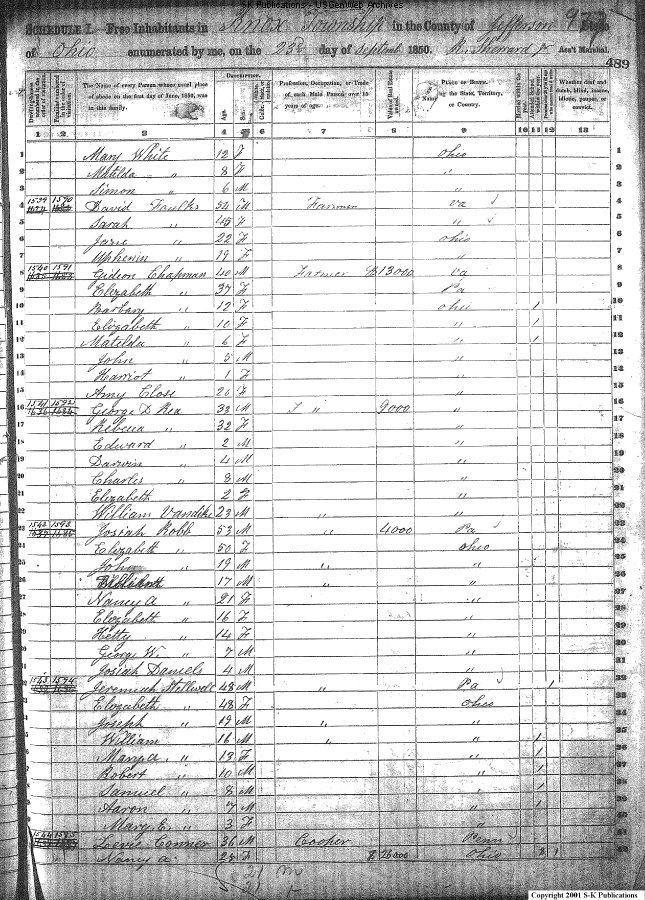 S-K Publications - USGenWeb Archives
SCHEDULE I. Free Inhabitants in Knox Township in the County of Jefferson
of Ohio enumerated by me, on the 23d day of Septembr 1850. Ass't Marshal.
489
The Name of every Person whose usual place of abode on the first day of June, 1850, was in this family.
Profession, Occupation, or Trade of each Male Person over 15 years of age.
Value of Real Estate owned.
Place of Birth. Naming the State, Territory, or Country.
Whether deaf and dumb, blind, insane, idiotic, pauper, or convict.
1 2 3 4 5 6 7 8 9 10 11 12 13
1 Mary White 12 F Ohio 1
2 Matilda " 8 F " 2
3 Simon " 6 M " 3
4 1539 1590 David Faulks 54 M Farmer Va 4
5 Sarah " 45 F " 5
6 Jane " 22 F Ohio 6
7 " 19 F " 7
8 1540 1591 Gideon Chapman 40 M Farmer $13000 Va 8
9 Elizabeth " 37 F Pa 9
10 Barbary " 12 F Ohio 1 10
11 Elizabeth " 10 F " 1 11
12 Matilda " 6 F " 1 12
13 John " 5 M " 13
14 Harriot " 1 F " 14
15 Amy Close 26 F " 15
16 1541 1592 George D Rea 33 M F " 9000 " 16
17 Rebecca " 32 F " 17
18 Edward " 2 M " 18
Darwin " 4 M "
Charles " 8 M "
Elizabeth 2 F "
William Vandike 23 M " "
1542 1593 Josiah Robb 53 M " 4000 Pa
Elizabeth " 50 F Ohio
John " 19 M " "
17 M " "
Nancy A " 21 F "
Elizabeth " 16 F "
Hetty " 14 F "
George W. " 7 M "
Josiah Daniels 4 M "
1543 1594 Jeremiah Stillwell 48 M " Pa 1
Elizabeth " 48 F Ohio
Joseph " 19 M " "
William 16 M " " 1
Mary A. " 13 F " 1
Robert " 10 M " 1
Samuel " 8 M " 1
Aaron " 7 M " 1
Mary E. " 3 F "
1544 1595 Conner 36 M Cooper Penn
Nancy A. F $26000 Ohio
21 m
21 f
Copyright 2001 S-K Publications